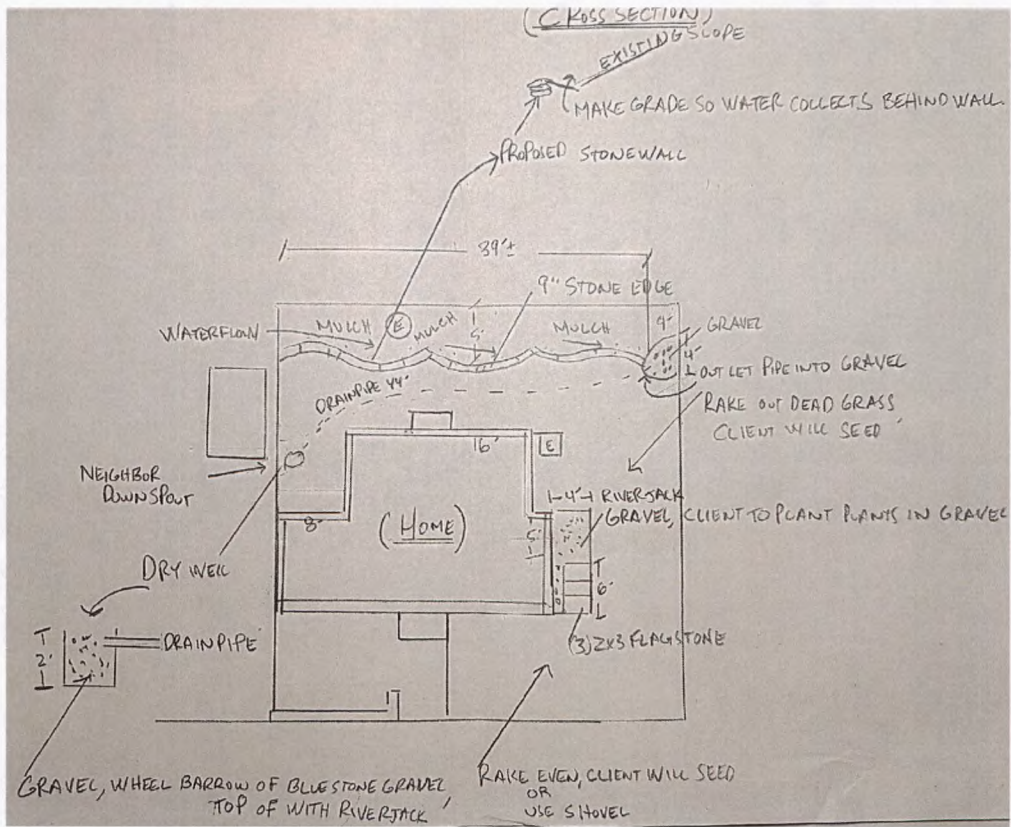 (CROSS SECTION)
EXISTING SLOPE
MAKE GRADE SO WATER COLLECTS BEHIND WALL.
PROPOSED STONEWALL
39'±
9" STONE EDGE
WATERFLOW
MULCH
E
MULCH
5'
MULCH
4'
GRAVEL
4'
OUTLET PIPE INTO GRAVEL
DRAINPIPE 44'
RAKE OUT DEAD GRASS
CLIENT WILL SEED
16'
E
NEIGHBOR
DOWNSPOUT
4'
RIVERJACK
GRAVEL, CLIENT TO PLANT PLANTS IN GRAVEL
8'
(HOME)
5'
6'
DRY WELL
DRAINPIPE
2'
(3) 2X3 FLAGSTONE
GRAVEL, WHEEL BARROW OF BLUESTONE GRAVEL,
TOP OF WITH RIVERJACK
RAKE EVEN, CLIENT WILL SEED
OR
USE SHOVEL